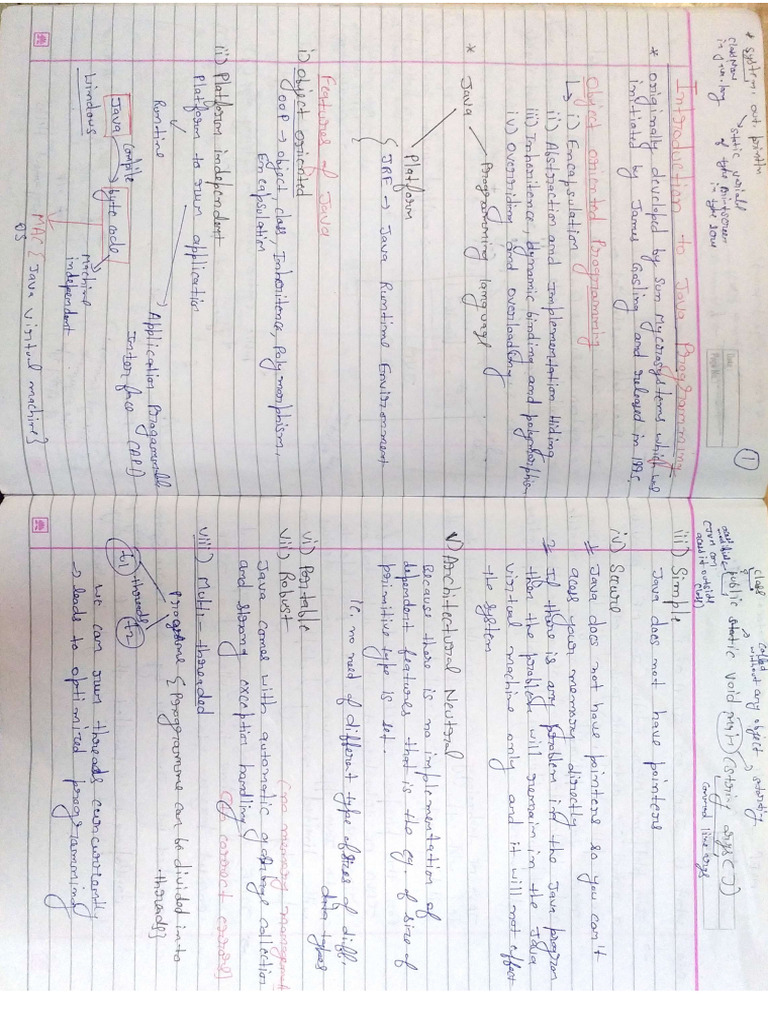 * System. out. println
class Name in java.lang
static variable of type printscreen in type some
1
Introduction to Java Programming
* originally developed by Sun Mycrosystems which was
initiated by James Gosling and released in 1995.
Object oriented Programming
↳ i) Encapsulation
ii) Abstraction and Implementation Hiding
iii) Inheritence, dynamic binding and polymorphism
iv) overriding and overloading
* Java
Programming language
Platform
{ JRE → Java Runtime Environment
Features of Java
i) Object oriented
OOP → object, class, Inheritence, Polymorphism,
Encapsulation
ii) Platform independent
Platform to run application
Runtime
Application Programmable
Interface (API)
Java compile byte code
machine
independent
Windows
MAC { Java virtual machine}
OS
class
called
without any object
starting
public static void main (string args[])
JVM can
access it outside
class)
command line args
iii) Simple
Java does not have pointers
iv) Secure
1 Java does not have pointers so you can't
acess your memory directly
2 If there is any problem in the Java program
then the problem will remain in the Java
virtual machine only and it will not effect
the system
v) Architectural Neutral
Because there is no implementation of
dependent features that is the eg. of size of
primitive type is set.
i.e. no need of different type of sizes of diff.
data types
vi) Portable
vii) Robust
(no memory management
Java comes with automatic garbage collection
and strong exception handling
correct errors)
viii) Multi-threaded
Programme { Programme can be divided in to
threads}
t1 threads t2
we can run threads cuncurrently
→ leads to optimized programming